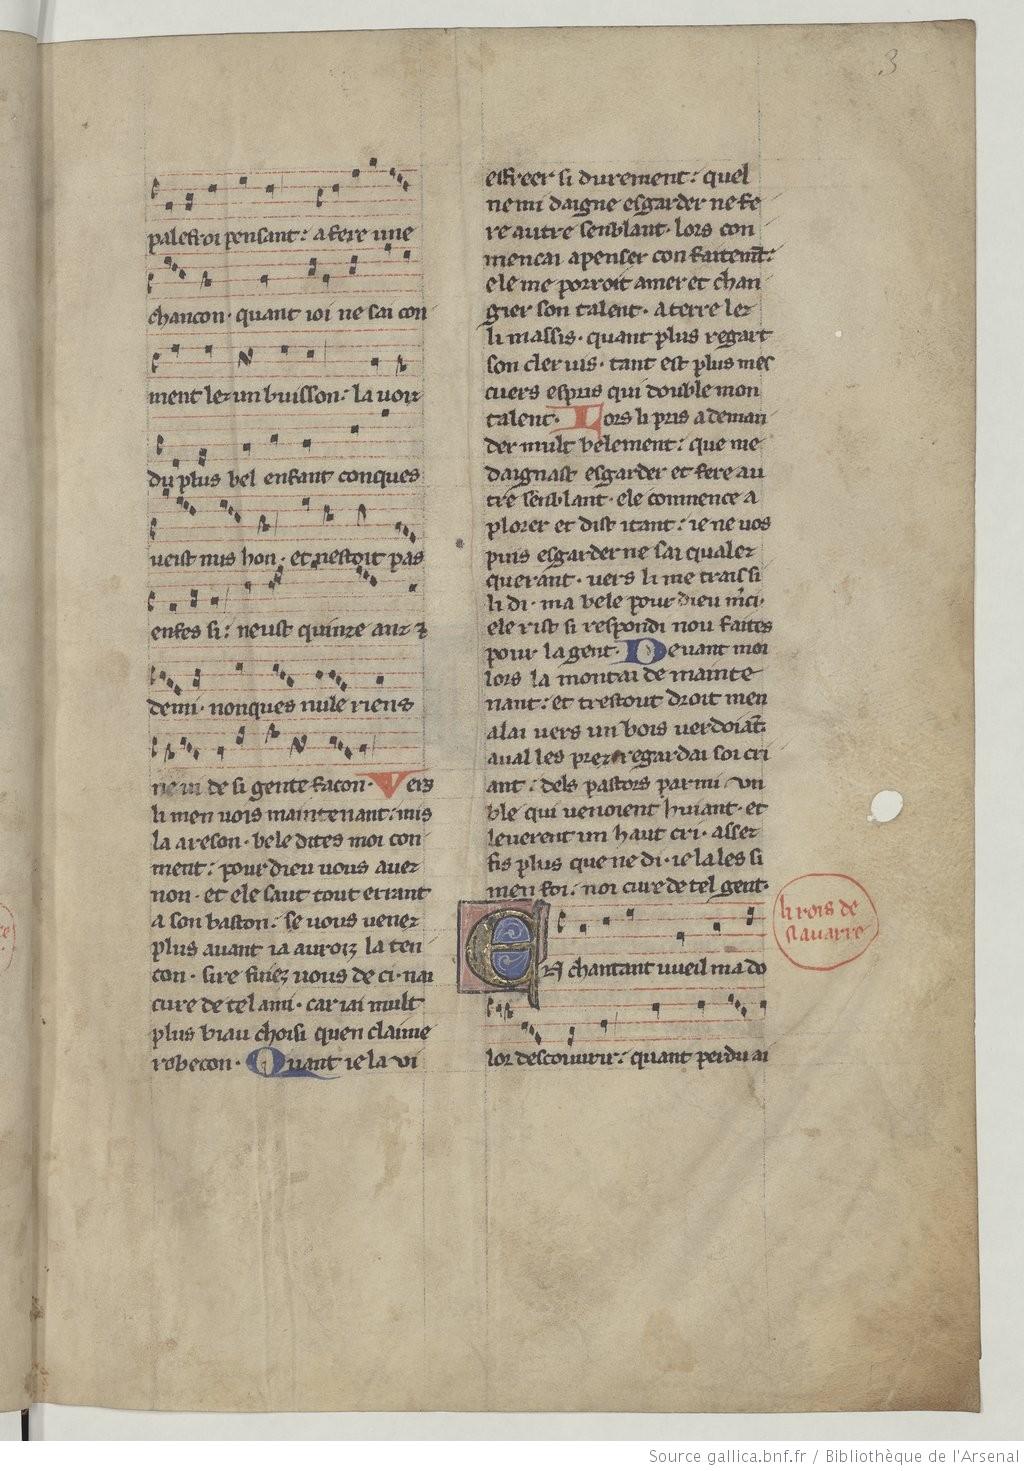 3
palefroi pensant: a fere une
chancon· quant ioi ne sai con
ment lez un buisson: la uoiz
du plus bel enfant conques
ueist nus hon· et nestoit pas
enfes si: neust quinze anz ⁊
demi· nonques nule riens
ne ui de si gente facon· Vers
li men uois maintenant: mis
la areson· bele dites moi con
ment: pour dieu uous auez
non· et ele saut tout errant
a son baston: se uous uenez
plus auant ia auroiz la ten
con· sire fuiez uous de ci· nai
cure de tel ami· car iai mult
plus biau choisi quen claime
robecon· Quant ie la vi
esfreer si durement: quel
ne mi daigne esgarder ne fe
re autre senblant· lors con
mencai a penser confaitemt̄:
ele me porroit amer et chan
gier son talent· a terre lez
li massis· quant plus regart
son cler uis· tant est plus mes
cuers espris qui double mon
talent· Lors li pris a deman
der mult belement: que me
daignast esgarder et fere au
tre senblant· ele commence a
plorer et dist itant: ie ne uos
puis esgarder ne sai qualez
querant· vers li me trais si
li di· ma bele pour dieu m̄ci·
ele rist si respondi nou faites
pour la gent· Deuant moi
lors la montai de mainte
nant: et trestout droit men
alai uers un bois uerdoiant:
aual les prez regardai soi cri
ant: dels pastors parmi vn
ble qui uenoient huiant· et
leuerent un haut cri· assez
fis plus que ne di· ie la les si
men foi: noi cure de tel gent·
li rois de
Nauarre
EN chantant vueil ma do
lor descouurir: quant perdu ai
Source gallica.bnf.fr / Bibliothèque de l'Arsenal